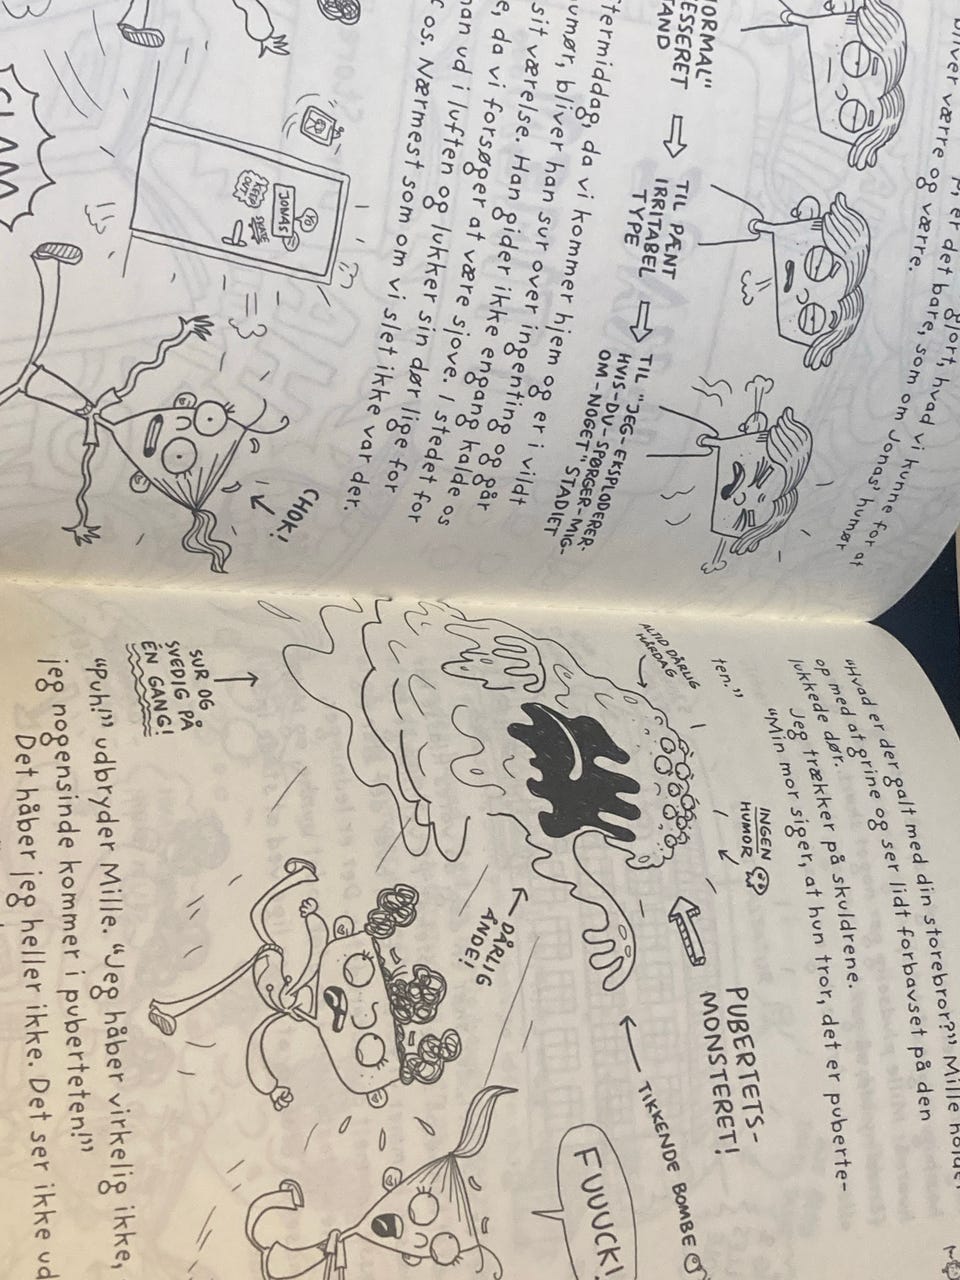 bliver værre og værre.
er det bare, som om Jonas' humør
gjort, hvad vi kunne for at
NORMAL"
TAND
TIL PÆNT
IRRITABEL
TYPE
TIL "JEG-EKSPLODERER-
HVIS-DU-SPØRGER-MIG-
OM-NOGET" STADIET
termiddag, da vi kommer hjem og er i vildt
umør, bliver han sur over ingenting og går
sit værelse. Han gider ikke engang kalde os
e, da vi forsøger at være sjove. I stedet for
han ud i luften og lukker sin dør lige for
os. Nærmest som om vi slet ikke var der.
YO
JONAS
KEEP
OUT
SKATE
CHOK!
SLAM
"Hvad er der galt med din storebror?" Mille holder
op med at grine og ser lidt forbavset på den
lukkede dør.
Jeg trækker på skuldrene.
"Min mor siger, at hun tror, det er puberte-
ten."
INGEN
HUMOR
ALTID DÅRLIG
HÅRDAG
PUBERTETS-
MONSTERET!
TIKKENDE BOMBE
DÅRLIG
ÅNDE!
FUUUCK!
SUR OG
SVEDIG PÅ
ÉN GANG!
"Puh!" udbryder Mille. "Jeg håber virkelig ikke,
jeg nogensinde kommer i puberteten!"
Det håber jeg heller ikke. Det ser ikke ud